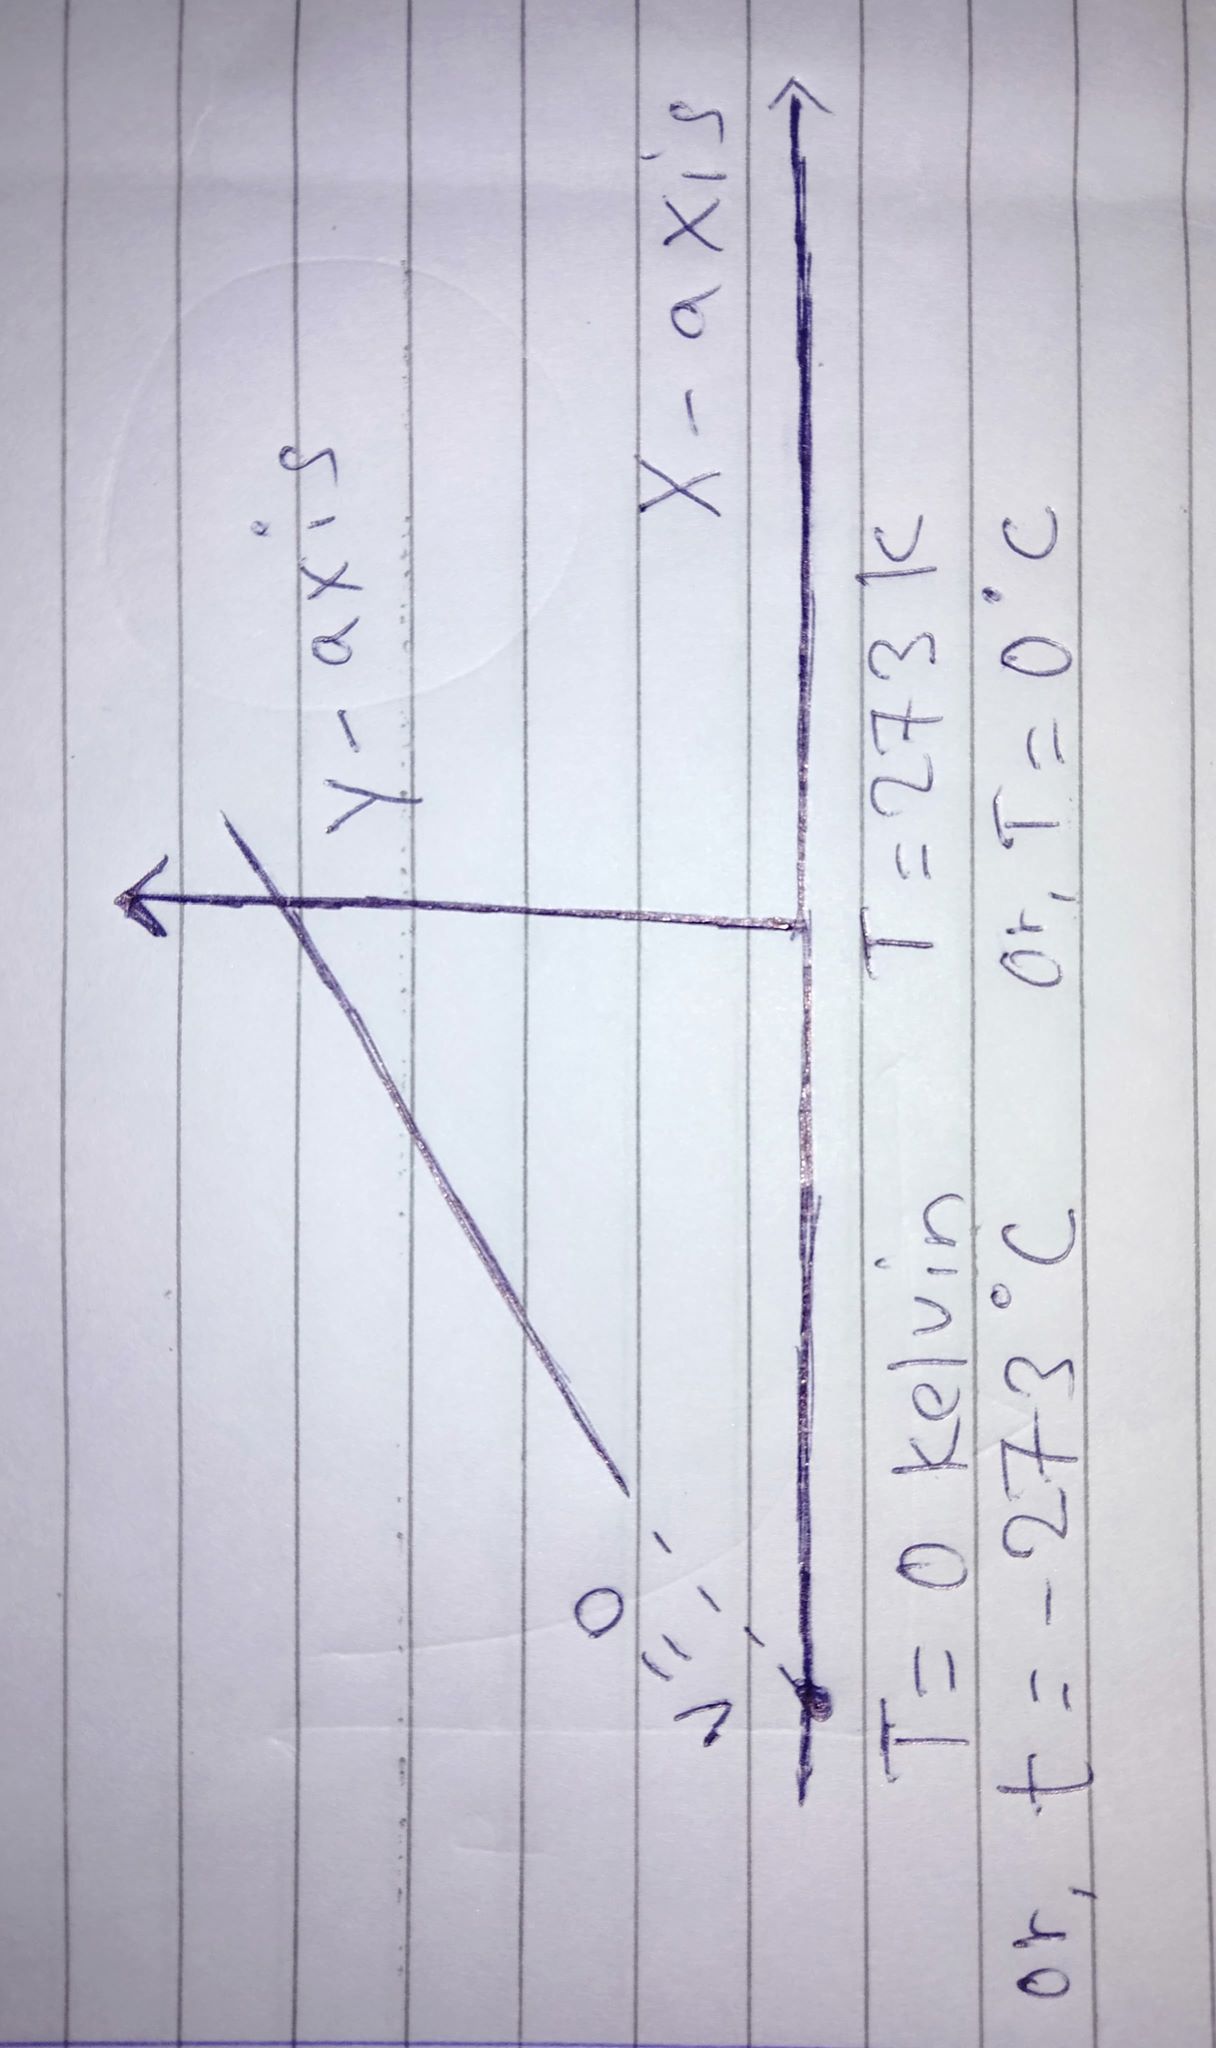 Y-axis
V=0
X-axis
T=0 kelvin
T=273 K
or, t=-273°C
or, T=0°C